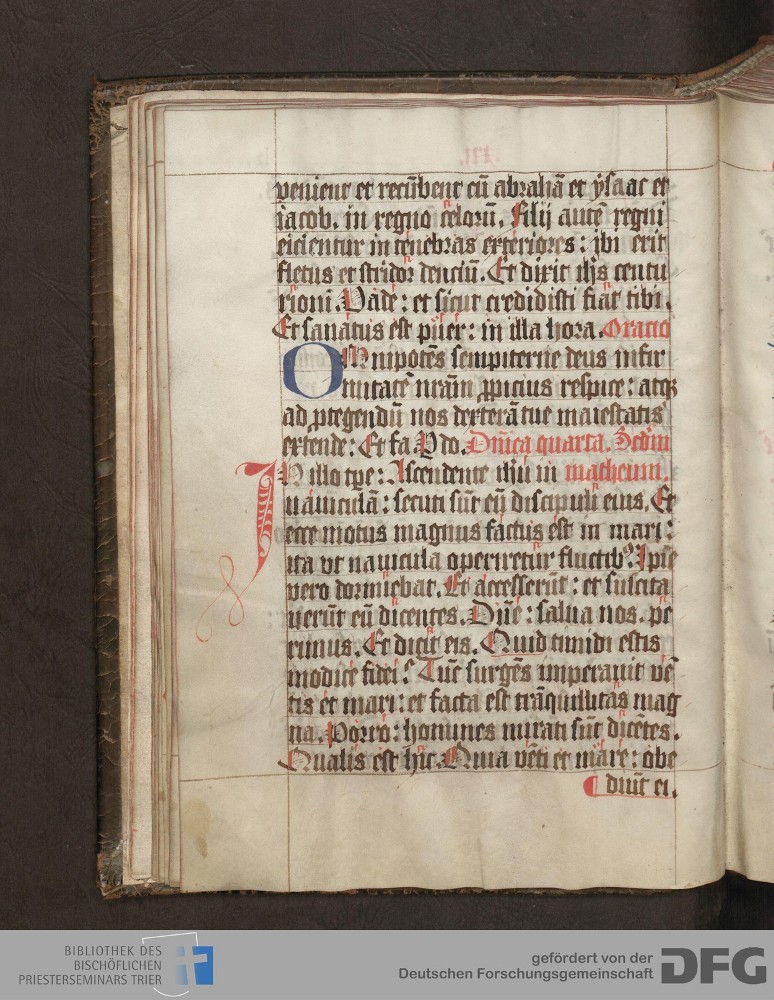 venient et recūbent cū abrahā et ysaac et
iacob. in regno celorū. Filij autē regni
eicientur in tenebras exteriores: ibi erit
fletus et stridor denciū. Et dixit ihs centu
rioni. Vade: et sicut credidisti fiat tibi.
Et sanatus est puer: in illa hora. Oratio
OMnipotēs sempiterne deus infir
mitatē nrām ꝓpicius respice: atqꝫ
ad ꝓtegendū nos dexterā tue maiestatis
extende: Et fa Pdo. Dn̄ica quarta. Scdm̄
IN illo tꝑe: Ascendente ihū in matheum.
nauiculā: secuti sūt eū discipuli eius. Et
ecce motus magnus factus est in mari:
ita vt nauicula operiretur fluctibꝰ. Ipse
vero dormiebat. Et accesserūt: et suscita
uerūt eū dicentes. Dn̄e: salua nos. pe
rimus. Et dicit eis. Quid timidi estis
modice fidei? Tūc surgēs imperauit vē
tis et mari: et facta est trāquillitas mag
na. Porro: homines mirati sūt dicētes.
Qualis est hic. Quia vēti et mare: obe
diūt ei.
BIBLIOTHEK DES
BISCHÖFLICHEN
PRIESTERSEMINARS TRIER
gefördert von der
Deutschen Forschungsgemeinschaft DFG